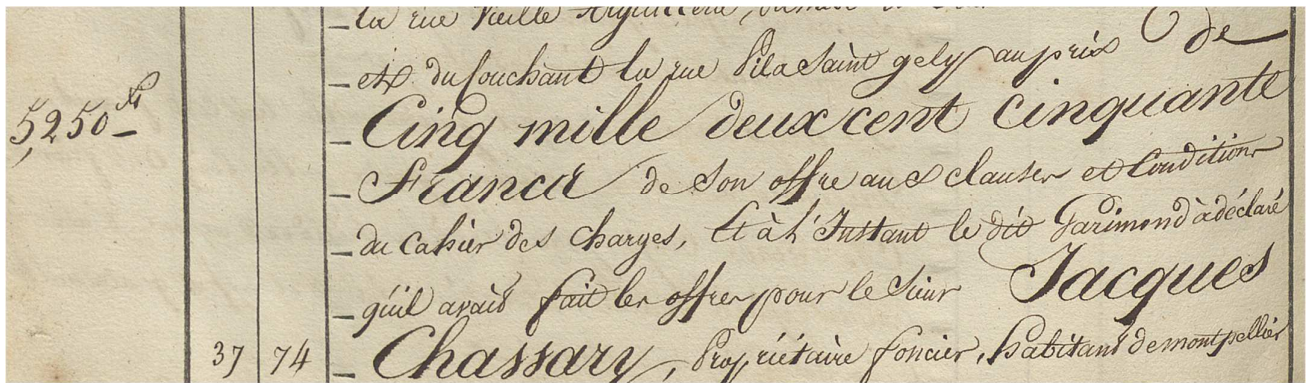 la rue Vieille Aiguillerie,
et du Couchant la rue Pila Saint gely au prix de
5,250 Cinq mille deux cent cinquante
Francs de Son offre aux clauses et Conditions
du Cahier des Charges, Et à l'Instant le dit Garimond à déclaré
qu'il avait fait les offres pour le Sieur Jacques
37 74 Chassary, Propriétaire foncier, habitant de montpellier